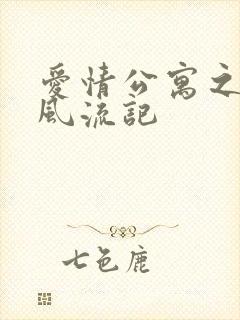 愛情公寓之
風流記
七色鹿